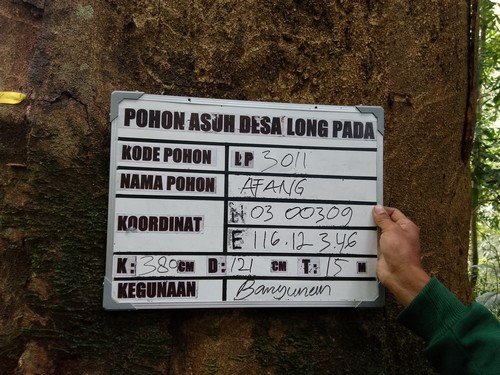 POHON ASUH DESA LONG PADA
KODE POHON LP 3011
NAMA POHON AFANG
KOORDINAT N 03 00309
E 116.12 3.46
K: 380 CM D: 121 CM T: 15 M
KEGUNAAN Bangunan